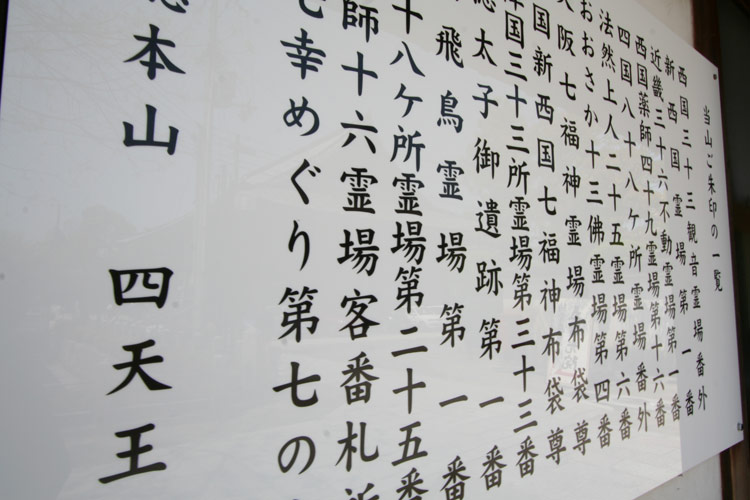 当山ご朱印の一覧
西国三十三観音霊場番外
新西国霊場第一番
近畿三十六不動霊場第一番
西国薬師四十九霊場第十六番
四国八十八ケ所霊場番外
法然上人二十五霊場第六番
おおさか十三佛霊場第四番
大阪七福神霊場布袋尊
国新西国七福神布袋尊
国三十三所霊場第三十三番
徳太子御遺跡第一番
飛鳥霊場第一番
十八ケ所霊場第二十五番
師十六霊場客番札
七幸めぐり第七の
総本山 四天王